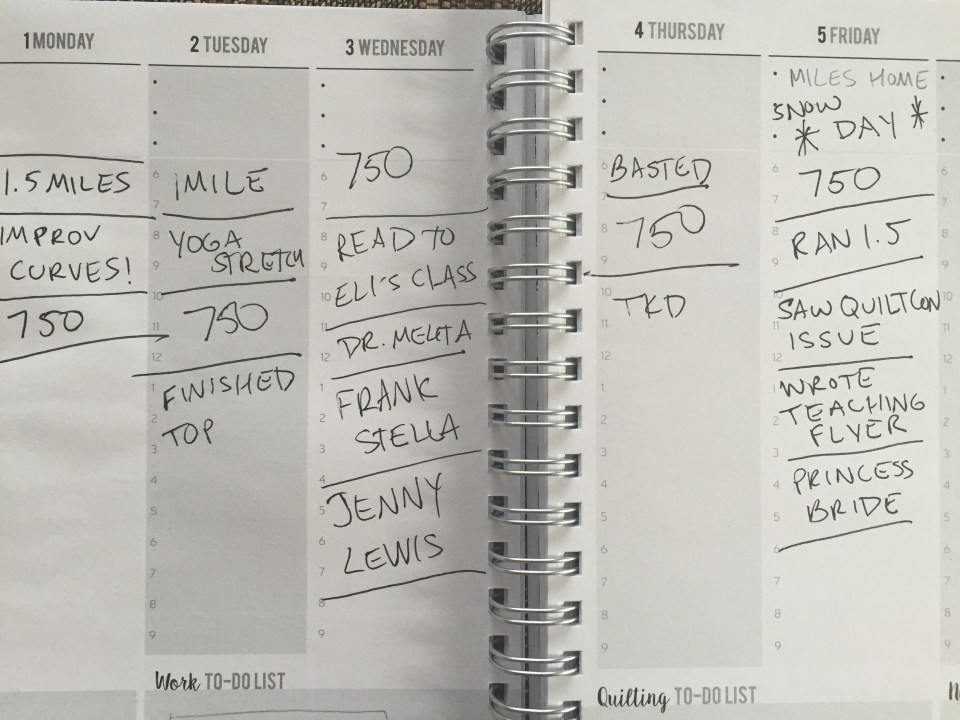 1 MONDAY
1.5 MILES
IMPROV
CURVES!
750
2 TUESDAY
6
7
8
9
10
11
12
1
2
3
4
5
6
7
8
9
1 MILE
YOGA
STRETCH
750
FINISHED
TOP
3 WEDNESDAY
6
7
8
9
10
11
12
1
2
3
4
5
6
7
8
9
750
READ TO
ELI'S CLASS
DR.
FRANK
STELLA
JENNY
LEWIS
Work TO-DO LIST
4 THURSDAY
6
7
8
9
10
11
12
1
2
3
4
5
6
7
8
9
BASTED
750
TKD
5 FRIDAY
MILES HOME
SNOW
* DAY *
6
7
8
9
10
11
12
1
2
3
4
5
6
7
8
9
750
RAN 1.5
SAW QUILTCON
ISSUE
WROTE
TEACHING
FLYER
PRINCESS
BRIDE
Quilting TO-DO LIST